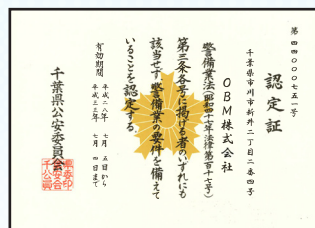 第四四〇〇〇七五一号
認定証
千葉県市川市新井二丁目二番四号
OBM株式会社
警備業法(昭和四十七年法律第百十七号)
第三条各号に掲げる者のいずれにも
該当せず、警備業の要件を備えて
いることを認定する。
有効期間
平成二八年 七月 五日から
平成三三年 七月 四日まで
千葉県公安委員会